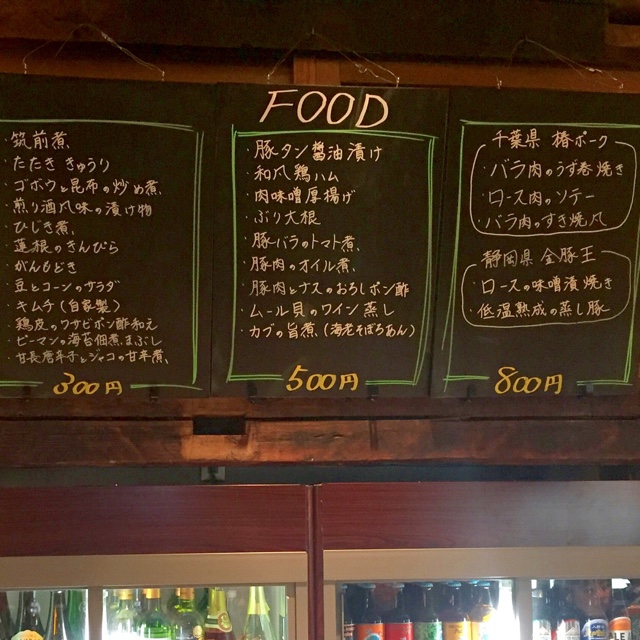 FOOD
・筑前煮
・たたき きゅうり
・ゴボウと昆布の炒め煮
・煎り酒風味の漬け物
・ひじき煮
・蓮根のきんぴら
・がんもどき
・豆とコーンのサラダ
・キムチ(自家製)
・鶏皮のワサビポン酢和え
・ピーマンの海苔佃煮まぶし
・甘長唐辛子とジャコの甘辛煮
300円
・豚タン醤油漬け
・和風鶏ハム
・肉味噌厚揚げ
・ぶり大根
・豚バラのトマト煮
・豚肉のオイル煮
・豚肉とナスのおろしポン酢
・ムール貝のワイン蒸し
・カブの旨煮(海老そぼろあん)
500円
千葉県 椿ポーク
・バラ肉のうず巻焼き
・ロース肉のソテー
・バラ肉のすき焼風
静岡県 金豚王
・ロースの味噌漬焼き
・低温熟成の蒸し豚
800円